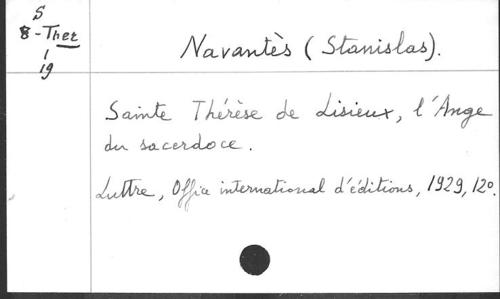 S
8-Ther
1
19
Navantès (Stanislas).
Sainte Thérèse de Lisieux, l'Ange
du sacerdoce.
Luttre, Office international d'éditions, 1929, 12º.